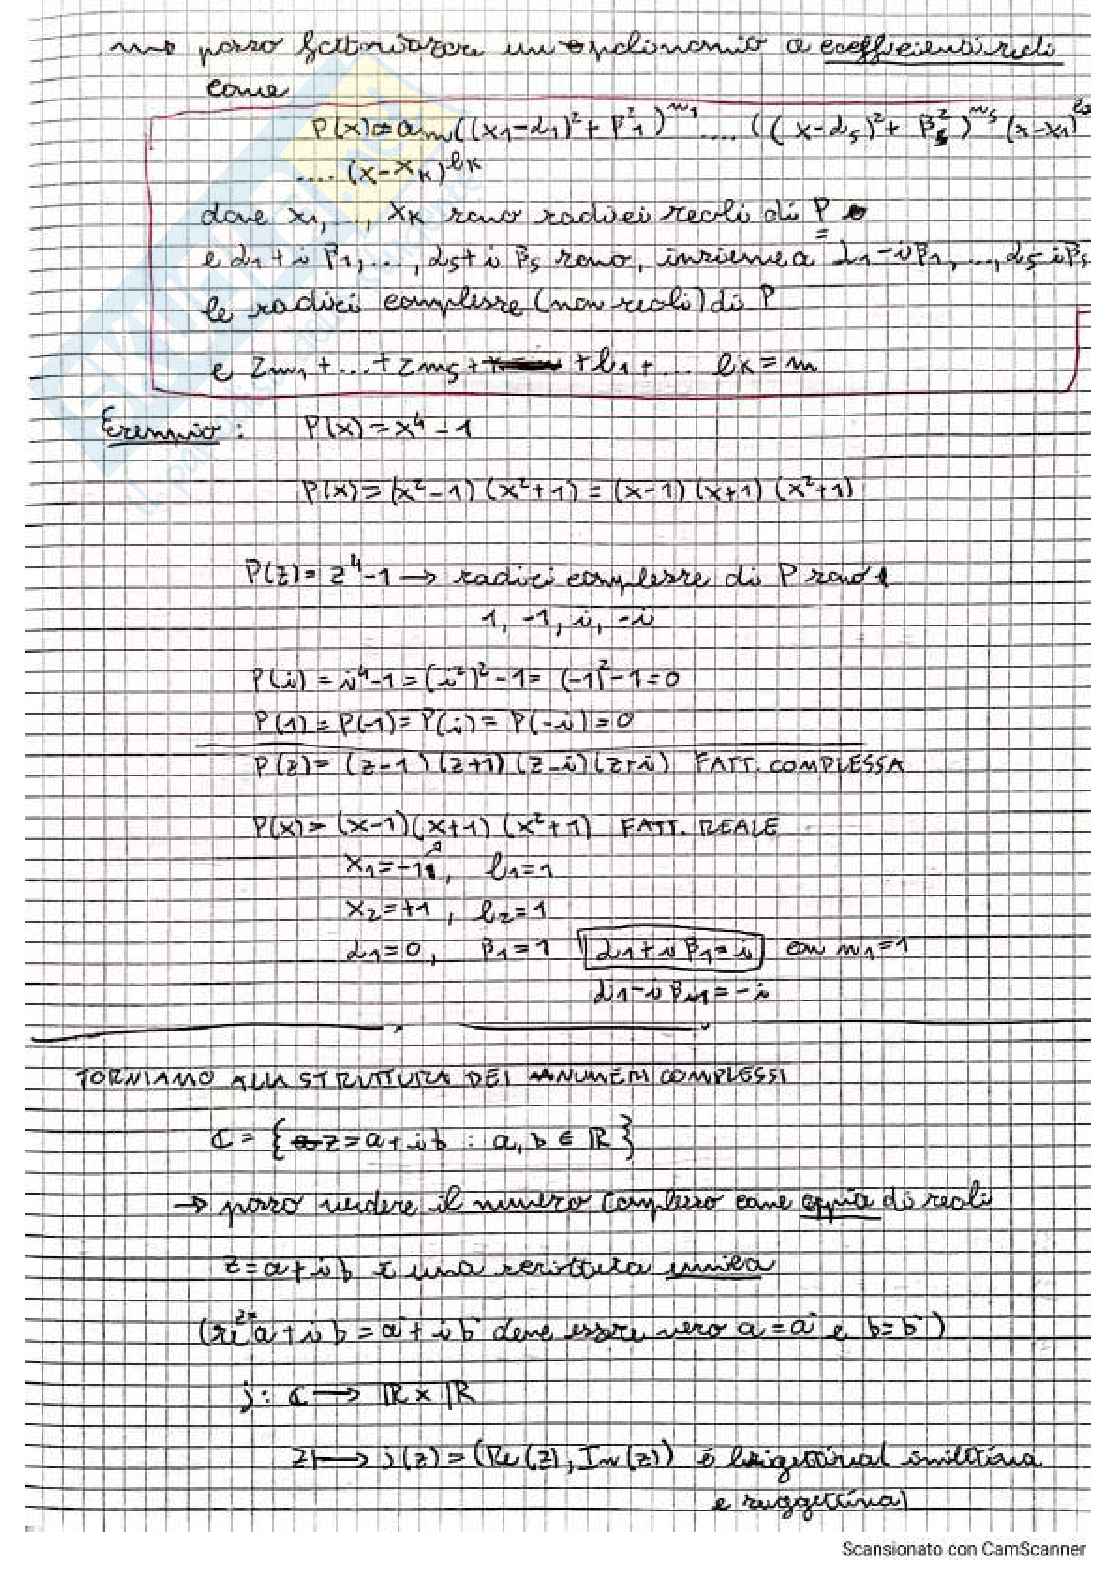 posso fattorizzare un polinomio a coefficienti reali
come
P(x)=am((x1-α1)²+β1²)^m1 .... ((x-αs)²+βs²)^ms (x-x1)^l1
.... (x-xK)^lK
dove x1,..., xK sono radici reali di P
e α1+iβ1,..., αs+iβs sono, insieme a α1-iβ1,..., αs iβs
le radici complesse (non reali) di P
e 2m1+...+2ms+ +l1+... lK=m
Esempio: P(x)=x⁴-1
P(x)=(x²-1)(x²+1)=(x-1)(x+1)(x²+1)
P(z)=z⁴-1→ radici complesse di P sono
1, -1, i, -i
P(i)=i⁴-1=(i²)²-1=(-1)²-1=0
P(1)=P(-1)=P(i)=P(-i)=0
P(z)=(z-1)(z+1)(z-i)(z+i) FATT. COMPLESSA
P(x)=(x-1)(x+1)(x²+1) FATT. REALE
x1=-1, l1=1
x2=+1, l2=1
α1=0, β1=1 α1+iβ1=i con m1=1
α1-iβ1=-i
TORNIAMO ALLA STRUTTURA DEI NUMERI COMPLESSI
C={z=a+ib : a,b∈ℝ}
→ posso vedere il numero complesso come coppia di reali
z=a+ib è una scrittura unica
(se a+ib=a'+ib' deve essere vero a=a' e b=b')
j: C→ℝ×ℝ
z↦j(z)=(Re(z), Im(z)) è biigettiva( iniettiva
e suggettiva)
Scansionato con CamScanner